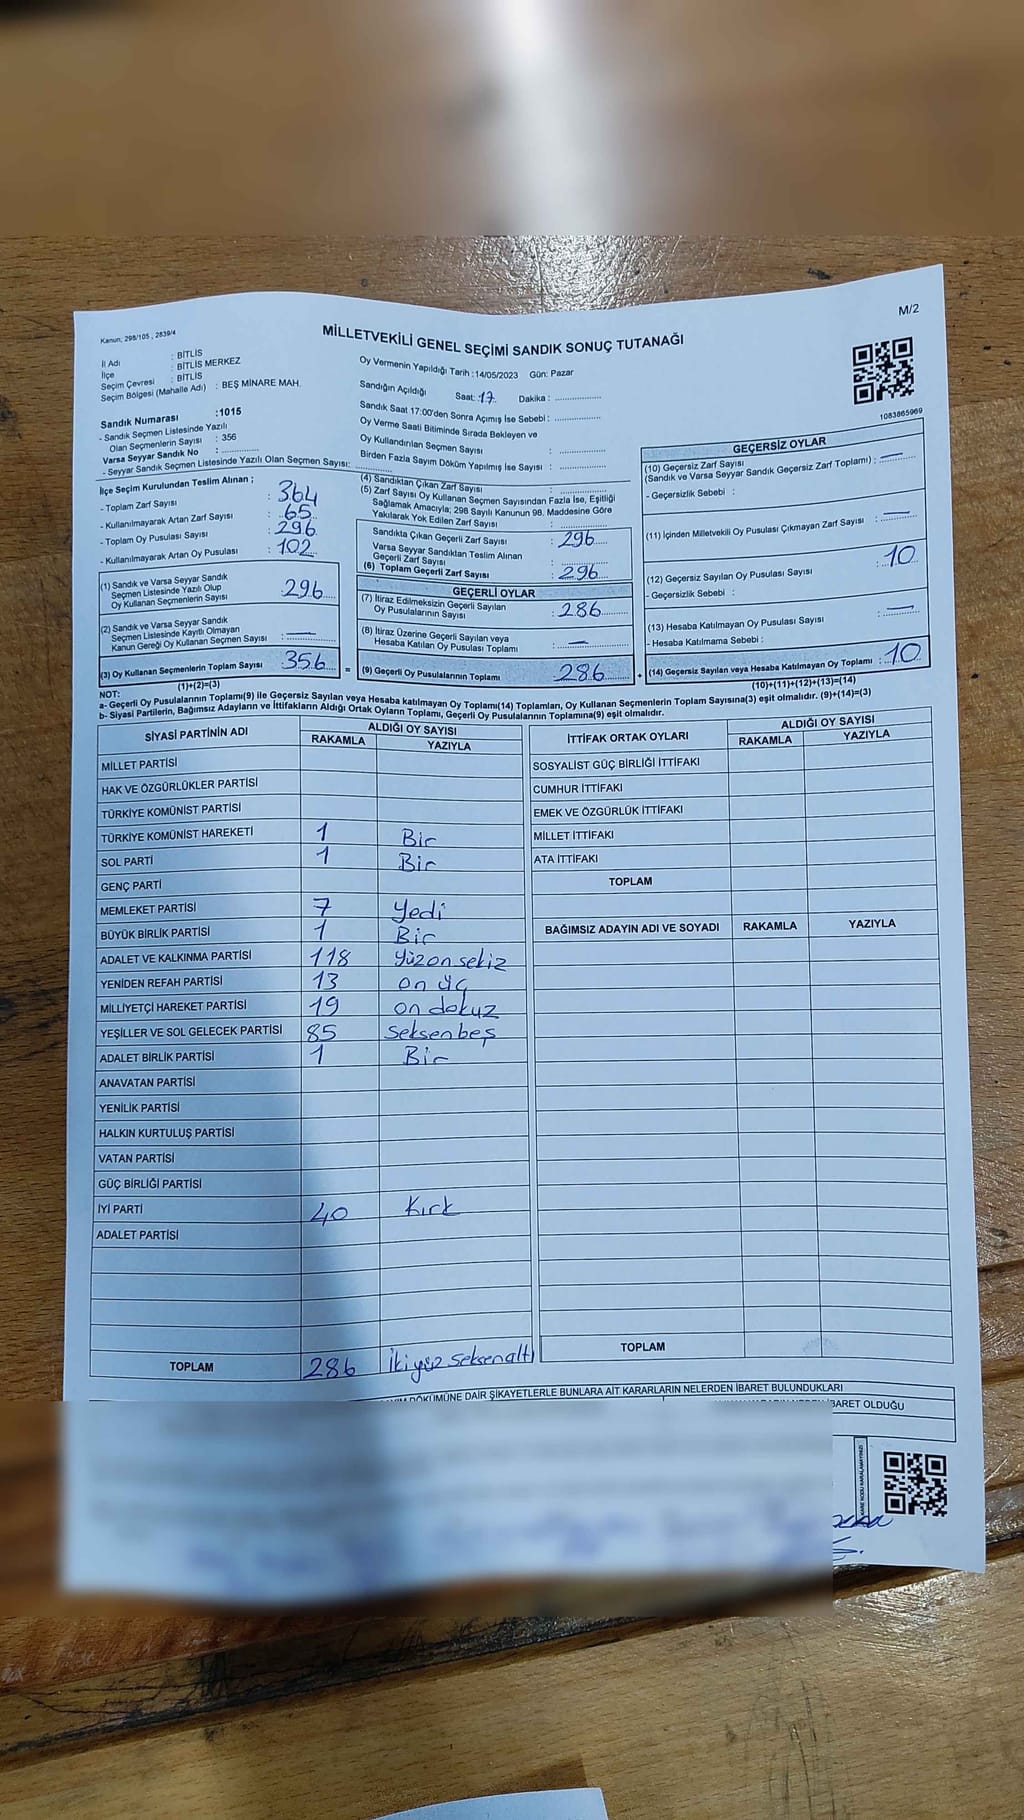 M/2
Kanun; 298/105 , 2839/4
MİLLETVEKİLİ GENEL SEÇİMİ SANDIK SONUÇ TUTANAĞI
İl Adı : BİTLİS
İlçe : BİTLİS MERKEZ
Seçim Çevresi : BİTLİS
Seçim Bölgesi (Mahalle Adı) : BEŞ MİNARE MAH.
Sandık Numarası :1015
- Sandık Seçmen Listesinde Yazılı
Olan Seçmenlerin Sayısı : 356
Varsa Seyyar Sandık No :
- Seyyar Sandık Seçmen Listesinde Yazılı Olan Seçmen Sayısı:
Oy Vermenin Yapıldığı Tarih :14/05/2023 Gün: Pazar
Sandığın Açıldığı Saat: 17 Dakika :
Sandık Saat 17:00'den Sonra Açımış İse Sebebi :
Oy Verme Saati Bitiminde Sırada Bekleyen ve
Oy Kullandırılan Seçmen Sayısı :
Birden Fazla Sayım Döküm Yapılmış İse Sayısı :
1083865969
İlçe Seçim Kurulundan Teslim Alınan ;
- Toplam Zarf Sayısı : 364
- Kullanılmayarak Artan Zarf Sayısı : 65
- Toplam Oy Pusulası Sayısı : 296
- Kullanılmayarak Artan Oy Pusulası : 102
(1) Sandık ve Varsa Seyyar Sandık
Seçmen Listesinde Yazılı Olup
Oy Kullanan Seçmenlerin Sayısı : 296
(2) Sandık ve Varsa Seyyar Sandık
Seçmen Listesinde Kayıtlı Olmayan
Kanun Gereği Oy Kullanan Seçmen Sayısı : —
(3) Oy Kullanan Seçmenlerin Toplam Sayısı : 356
(1)+(2)=(3)
(4) Sandıktan Çıkan Zarf Sayısı :
(5) Zarf Sayısı Oy Kullanan Seçmen Sayısından Fazla İse, Eşitliği
Sağlamak Amacıyla; 298 Sayılı Kanunun 98. Maddesine Göre
Yakılarak Yok Edilen Zarf Sayısı :
Sandıkta Çıkan Geçerli Zarf Sayısı : 296
Varsa Seyyar Sandıktan Teslim Alınan
Geçerli Zarf Sayısı :
(6) Toplam Geçerli Zarf Sayısı : 296
GEÇERLİ OYLAR
(7) İtiraz Edilmeksizin Geçerli Sayılan
Oy Pusulalarının Sayısı : 286
(8) İtiraz Üzerine Geçerli Sayılan veya
Hesaba Katılan Oy Pusulası Toplamı : —
= (9) Geçerli Oy Pusulalarının Toplamı : 286 +
GEÇERSİZ OYLAR
(10) Geçersiz Zarf Sayısı
(Sandık ve Varsa Seyyar Sandık Geçersiz Zarf Toplamı) : —
- Geçersizlik Sebebi :
(11) İçinden Milletvekili Oy Pusulası Çıkmayan Zarf Sayısı : —
(12) Geçersiz Sayılan Oy Pusulası Sayısı : 10
- Geçersizlik Sebebi :
(13) Hesaba Katılmayan Oy Pusulası Sayısı : —
- Hesaba Katılmama Sebebi :
(14) Geçersiz Sayılan veya Hesaba Katılmayan Oy Toplamı : 10
(10)+(11)+(12)+(13)=(14)
NOT:
a- Geçerli Oy Pusulalarının Toplamı(9) ile Geçersiz Sayılan veya Hesaba katılmayan Oy Toplamı(14) Toplamları, Oy Kullanan Seçmenlerin Toplam Sayısına(3) eşit olmalıdır. (9)+(14)=(3)
b- Siyasi Partilerin, Bağımsız Adayların ve İttifakların Aldığı Ortak Oyların Toplamı, Geçerli Oy Pusulalarının Toplamına(9) eşit olmalıdır.
SİYASİ PARTİNİN ADI ALDIĞI OY SAYISI
RAKAMLA YAZIYLA
MİLLET PARTİSİ
HAK VE ÖZGÜRLÜKLER PARTİSİ
TÜRKİYE KOMÜNİST PARTİSİ
TÜRKİYE KOMÜNİST HAREKETİ 1 Bir
SOL PARTİ 1 Bir
GENÇ PARTİ
MEMLEKET PARTİSİ 7 Yedi
BÜYÜK BİRLİK PARTİSİ 1 Bir
ADALET VE KALKINMA PARTİSİ 118 Yüzon sekiz
YENİDEN REFAH PARTİSİ 13 on üç
MİLLİYETÇİ HAREKET PARTİSİ 19 on dokuz
YEŞİLLER VE SOL GELECEK PARTİSİ 85 Seksenbeş
ADALET BİRLİK PARTİSİ 1 Bir
ANAVATAN PARTİSİ
YENİLİK PARTİSİ
HALKIN KURTULUŞ PARTİSİ
VATAN PARTİSİ
GÜÇ BİRLİĞİ PARTİSİ
İYİ PARTİ 40 Kırk
ADALET PARTİSİ
TOPLAM 286 İkiyüz seksenaltı
İTTİFAK ORTAK OYLARI ALDIĞI OY SAYISI
RAKAMLA YAZIYLA
SOSYALİST GÜÇ BİRLİĞİ İTTİFAKI
CUMHUR İTTİFAKI
EMEK VE ÖZGÜRLÜK İTTİFAKI
MİLLET İTTİFAKI
ATA İTTİFAKI
TOPLAM
BAĞIMSIZ ADAYIN ADI VE SOYADI RAKAMLA YAZIYLA
TOPLAM
DÖKÜMÜNE DAİR ŞİKAYETLERLE BUNLARA AİT KARARLARIN NELERDEN İBARET BULUNDUKLARI
İBARET OLDUĞU